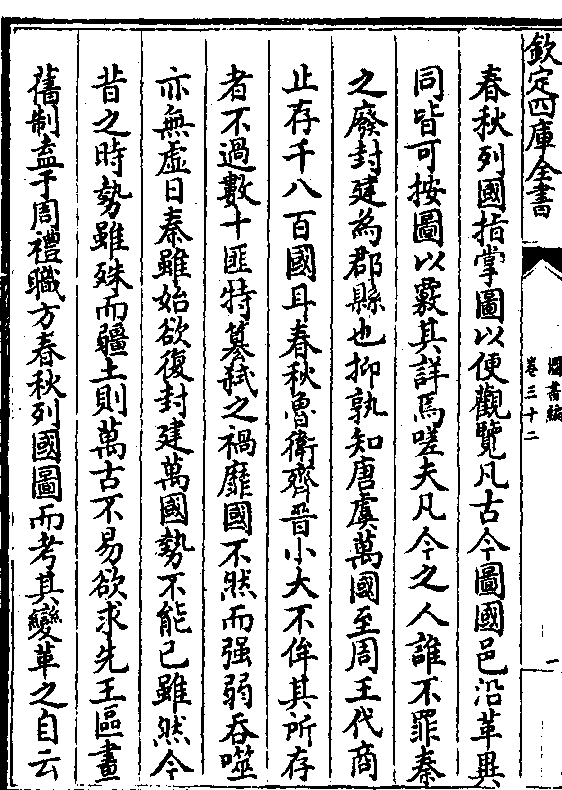 欽定四庫全書
圖書編
卷三十二
一
春秋列國指掌圖以便觀覽凡古今圖國邑沿革異
同皆可按圖以覈其詳焉嗟夫凡今之人誰不罪秦
之廢封建為郡縣也抑孰知唐虞萬國至周王代商
止存千八百國耳春秋魯衛齊晋小大不侔其所存
者不過數十匪特簒弑之禍靡國不然而强弱吞噬
亦無虛日秦雖始欲復封建萬國勢不能已雖然今
昔之時勢雖殊而疆土則萬古不易欲求先王區畫
舊制盍于周禮職方春秋列國圖而考其變革之自云